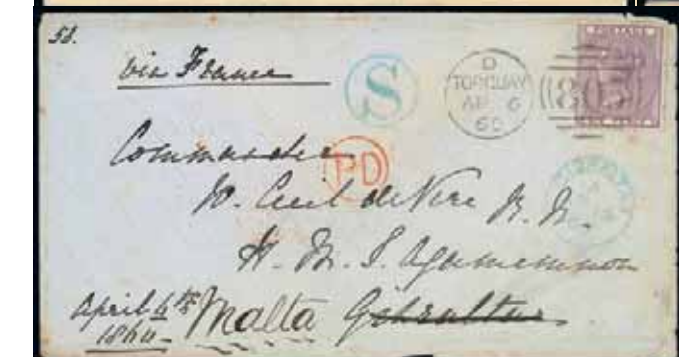 5d.
via France
S
D
TORQUAY
AP 6
60
805
POSTAGE
Commander
PD
W. Cecil de Vere R. N.
H. M. S. Agamemnon
April 6th
1860
Malta Gibraltar